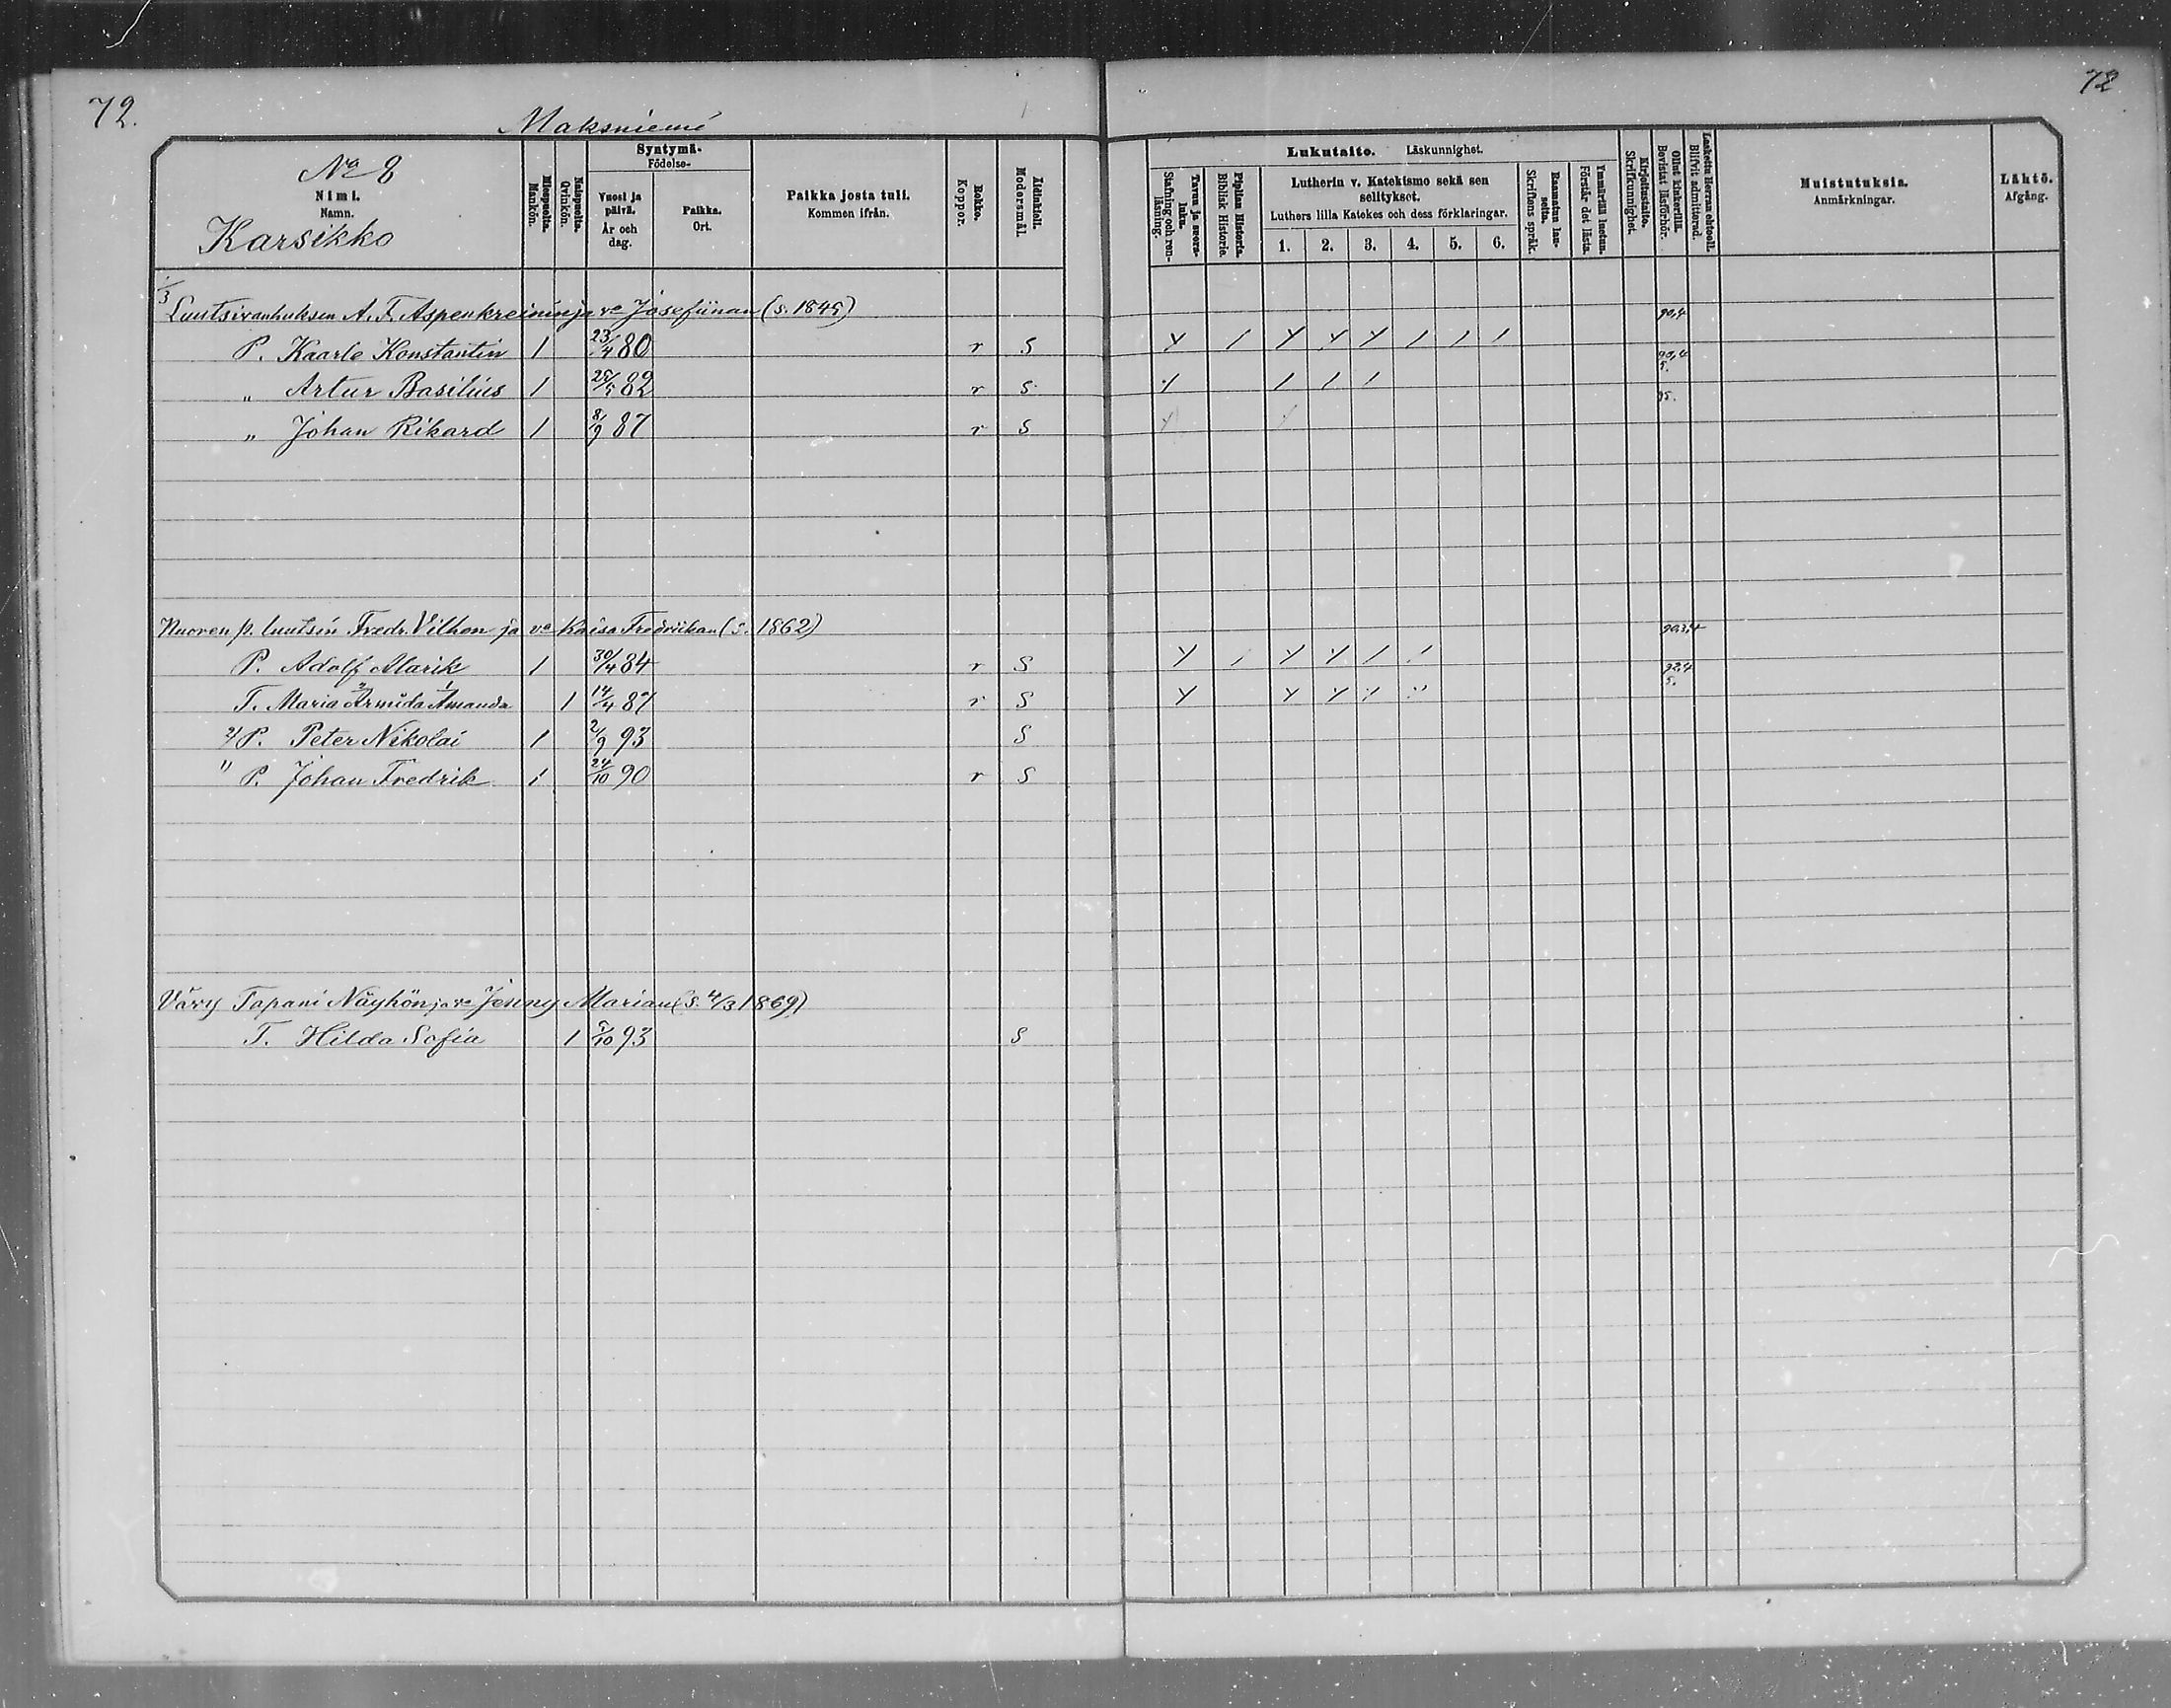 72.
72
Maksniemi
No 8
Nimi.
Namn.
Karsikko
Miespuolia. Mankön.
Naispuolia. Qvinkön.
Syntymä- Födelse-
Vuosi ja päivä. År och dag.
Paikka. Ort.
Paikka josta tuli. Kommen ifrån.
Rokko. Koppor.
Äidinkieli. Modersmål.
Lukutaito. Läskunnighet.
Tavuu ja suora-luku. Stafning och ren-läsning.
Piplian Historia. Biblisk Historie.
Lutherin v. Katekismo sekä sen selitykset.
Luthers lilla Katekes och dess förklaringar.
1. 2. 3. 4. 5. 6.
Raamatun lau-seita. Skriftens språk.
Ymmärtää luetun. Förstår det lästa.
Kirjoitustaito. Skrifkunnighet.
Ollut kinkerillä. Bevistat läsförhör.
Laskettu Herran ehtoolle. Blifvit admitterad.
Muistutuksia. Anmärkningar.
Lähtö. Afgång.
1/3
Luutsivanhuksen A. F. Aspenkreinin ja vo Josefiinan (s. 1845) 90,4
P. Kaarle Konstantin 1 23/4 80 r S 90,4 5.
" Artur Basilius 1 25/5 82 r S 95.
" Johan Rikard 1 8/9 87 r S
Nuoren p. luutsin Fredr. Vilhon ja vo Kaisa Fredriikan (s. 1862) 90,3,4
P. Adolf Alarik 1 30/4 84 r S 92,4 5.
T. Maria Armida Amanda 1 14/4 87 r S
2/ P. Peter Nikolai 1 2/9 93 S
1/ P. Johan Fredrik 1 24/10 90 r S
Vävy Tapani Näyhön ja vo Jenny Marian (s. 4/3 1869)
T. Hilda Sofia 1 5/10 93 S